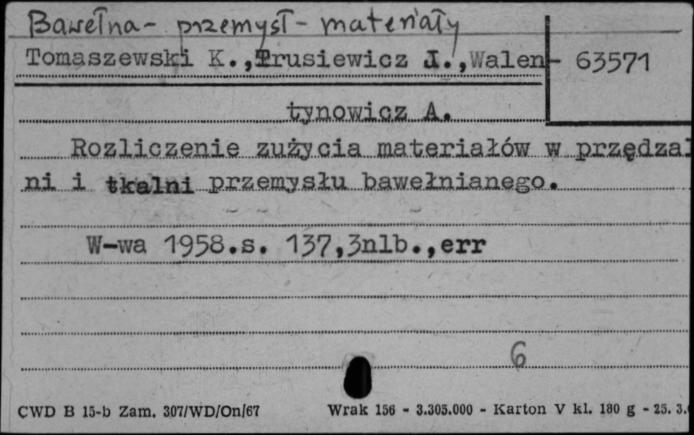 Bawełna - przemysł - materiały
Tomaszewski K., Trusiewicz J., Walen- 63571
tynowicz A.
Rozliczenie zużycia materiałów w przędzal
ni i tkalni przemysłu bawełnianego.
W-wa 1958.s. 137,3nlb.,err
6
CWD B 15-b Zam. 307/WD/On/67 Wrak 156 - 3.305.000 - Karton V kl. 180 g - 25. 3.